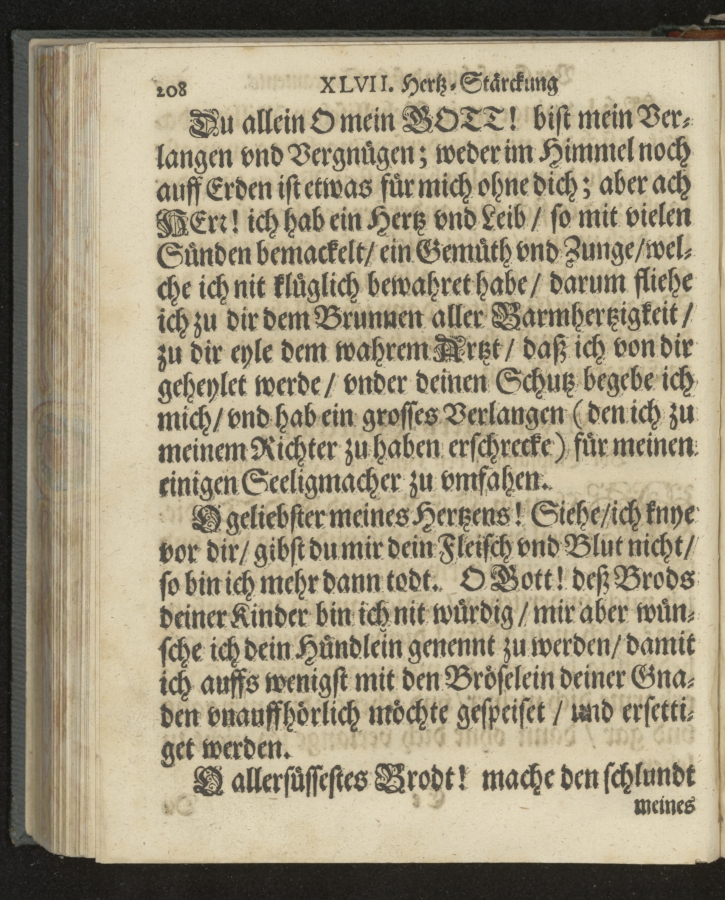 208 XLVII. Hertz-Stärckung
Du allein O mein GOTT! bist mein Ver-
langen vnd Vergnügen; weder im Himmel noch
auff Erden ist etwas für mich ohne dich; aber ach
HErr! ich hab ein Hertz vnd Leib / so mit vielen
Sünden bemackelt/ ein Gemüth vnd Zunge/wel-
che ich nit klüglich bewahret habe / darum fliehe
ich zu dir dem Brunnen aller Barmhertzigkeit /
zu dir eyle dem wahrem Artzt / daß ich von dir
geheylet werde / vnder deinen Schutz begebe ich
mich/ vnd hab ein grosses Verlangen ( den ich zu
meinem Richter zu haben erschrecke) für meinen
einigen Seeligmacher zu vmfahen.
O geliebster meines Hertzens! Siehe/ich knye
vor dir/ gibst du mir dein Fleisch vnd Blut nicht/
so bin ich mehr dann todt. O Gott! deß Brods
deiner Kinder bin ich nit würdig / mir aber wün-
sche ich dein Hündlein genennt zu werden/ damit
ich auffs wenigst mit den Bröselein deiner Gna-
den vnauffhörlich möchte gespeiset / und ersetti-
get werden.
O allersüssestes Brodt! mache den schlundt
meines